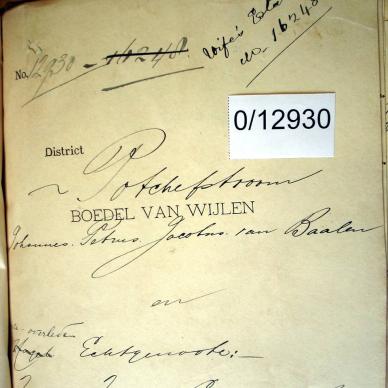 No. 12930 - 16248
Wife's Esta
No. 16248
0/12930
District
Potchefstroom
BOEDEL VAN WIJLEN
Johannes Petrus Jacobus van Baalen
en
overleden
Echtgenoote:-